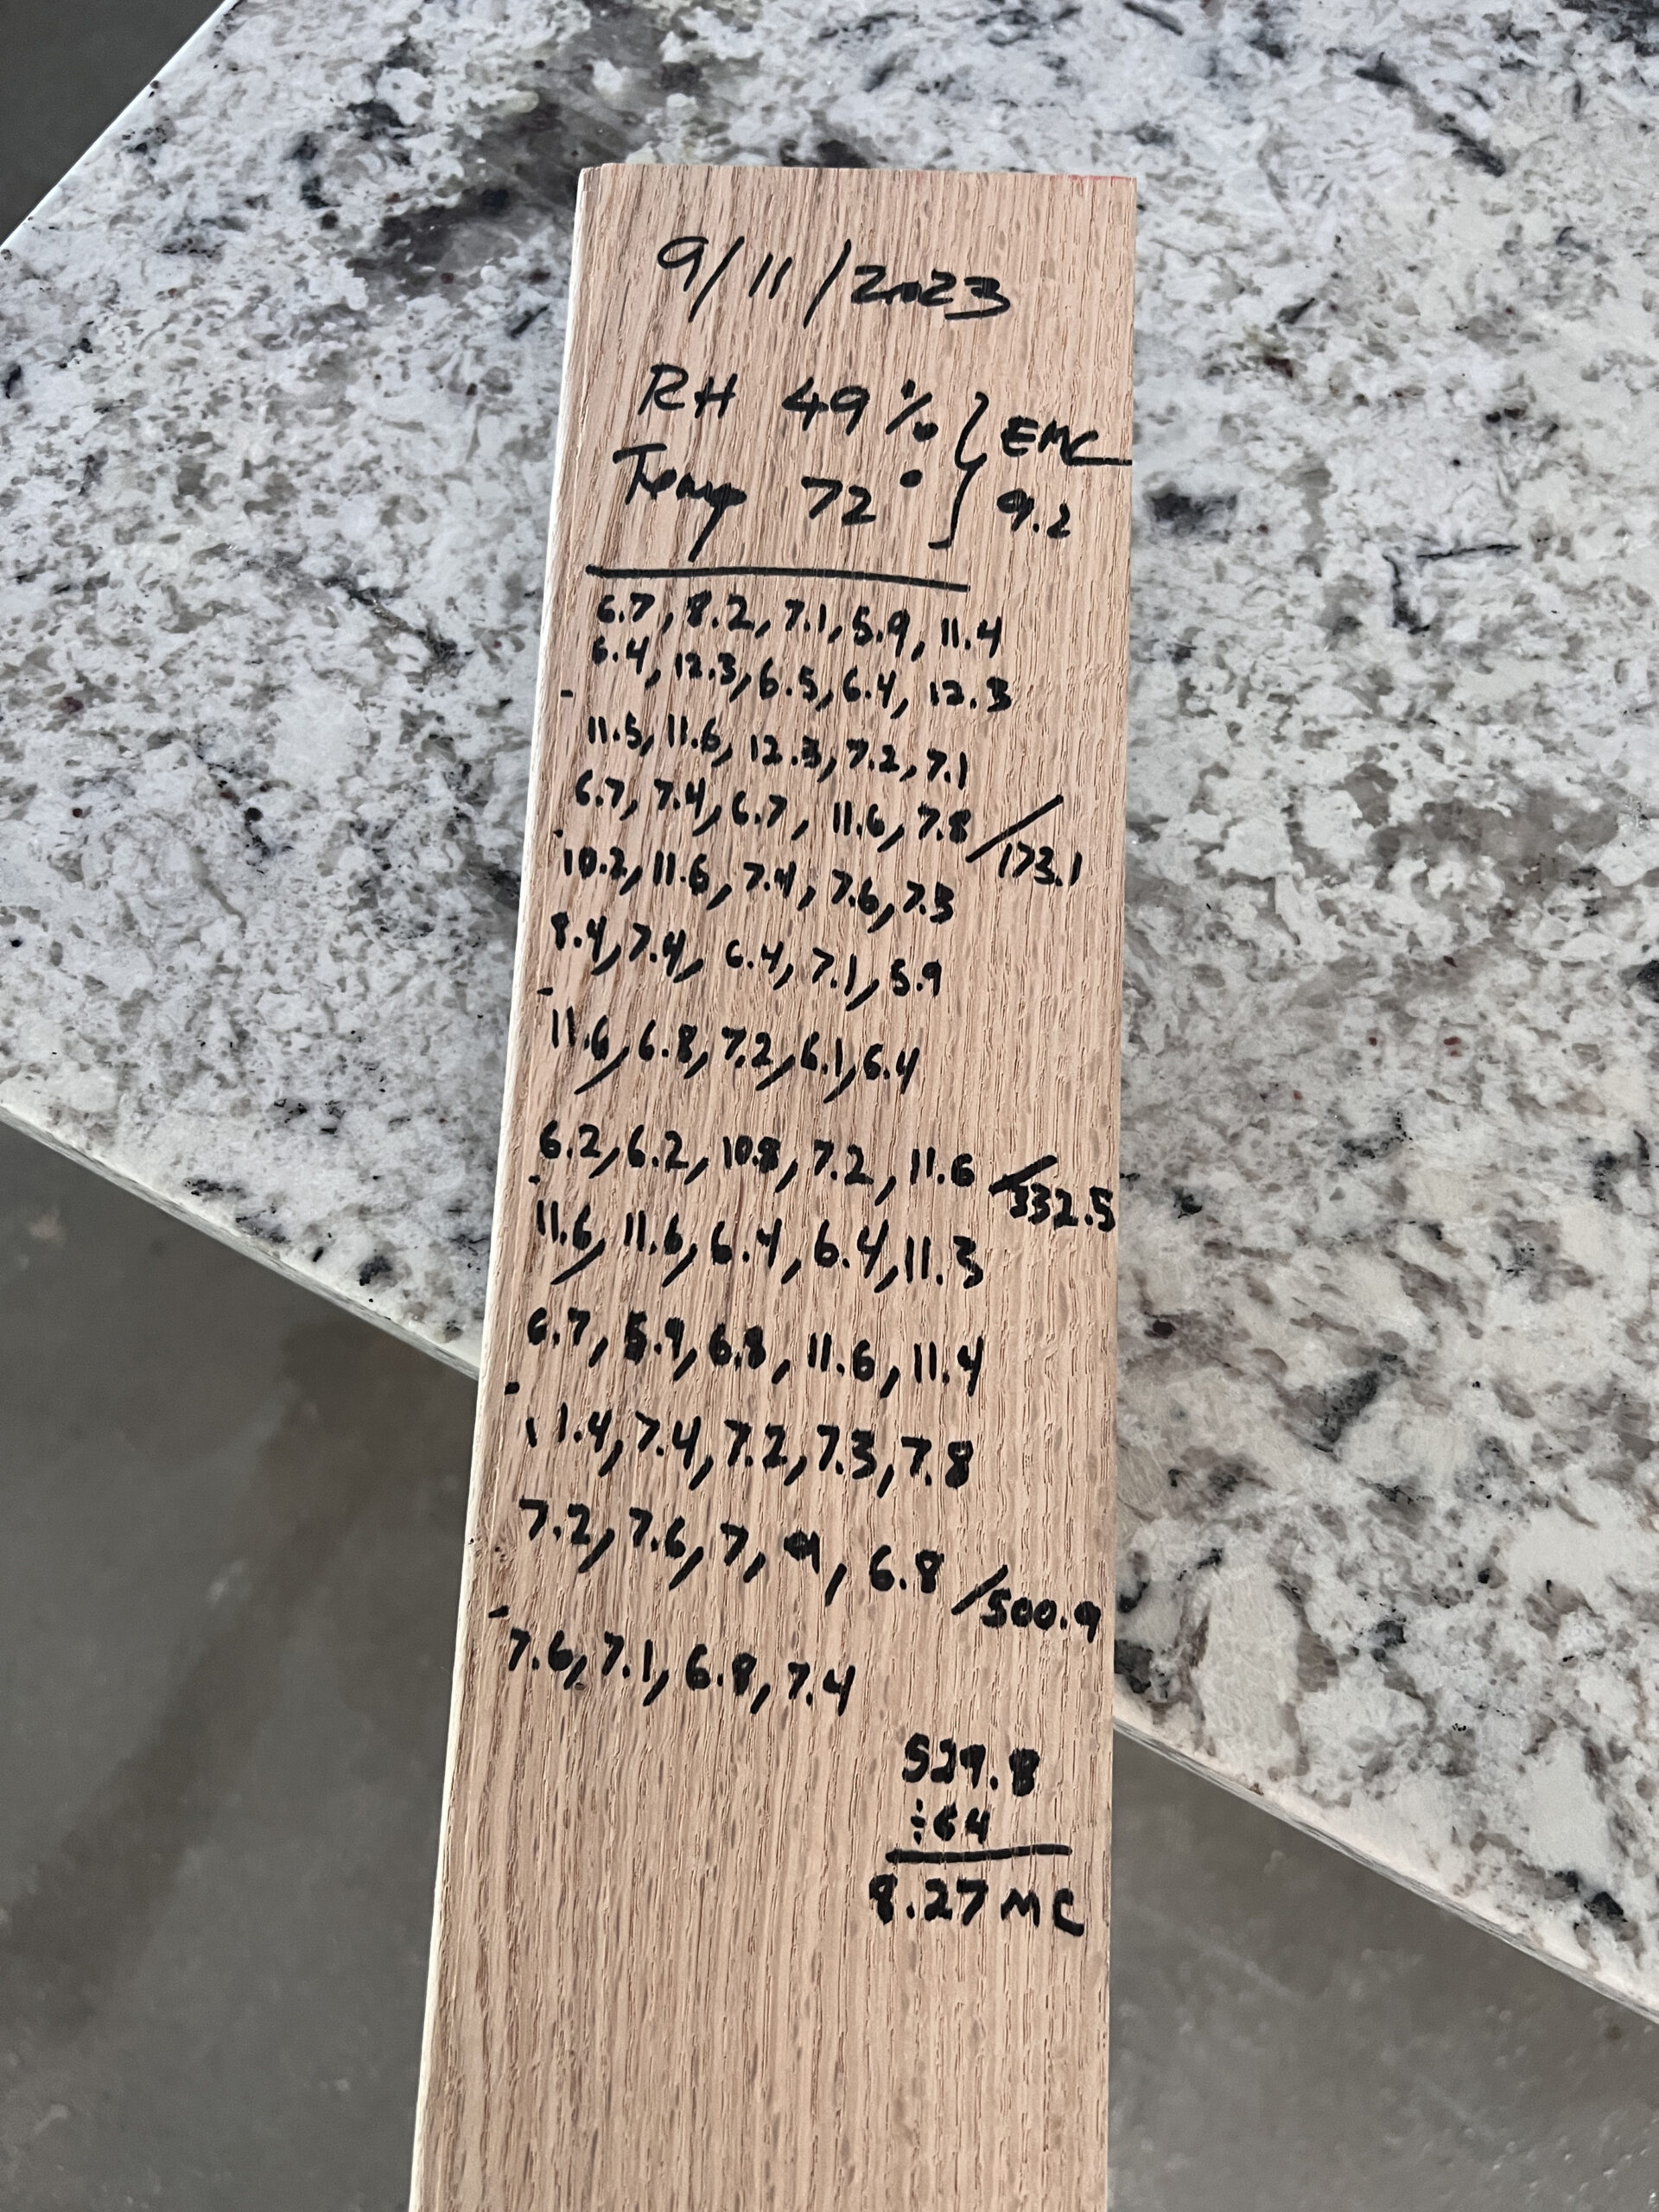 9/11/2023
RH 49% } EMC
Temp 72° } 9.2
6.7, 8.2, 7.1, 5.9, 11.4
6.4, 12.3, 6.5, 6.4, 12.3
11.5, 11.6, 12.3, 7.2, 7.1
6.7, 7.4, 6.7, 11.6, 7.8 /173.1
10.2, 11.6, 7.4, 7.6, 7.3
8.4, 7.4, 6.4, 7.1, 5.9
11.6, 6.8, 7.2, 6.1, 6.4
6.2, 6.2, 10.8, 7.2, 11.6 /332.5
11.6, 11.6, 6.4, 6.4, 11.3
6.7, 5.9, 6.8, 11.6, 11.4
11.4, 7.4, 7.2, 7.3, 7.8
7.2, 7.6, 7, 9, 6.8 /500.9
7.6, 7.1, 6.8, 7.4
529.8
÷64
8.27 MC